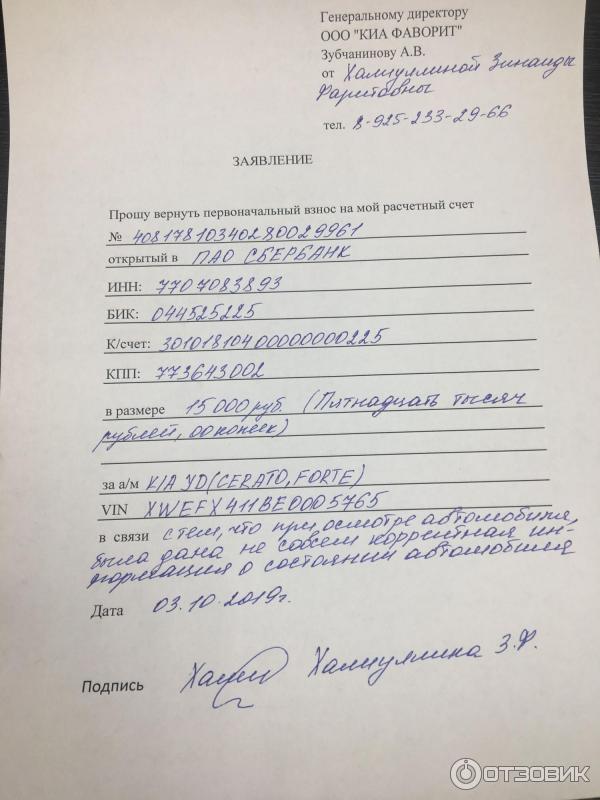 Генеральному директору
ООО "КИА ФАВОРИТ"
Зубчанинову А.В.
от Халиуллиной Зинаиды
Фаритовны
тел. 8-925-233-29-66
ЗАЯВЛЕНИЕ
Прошу вернуть первоначальный взнос на мой расчетный счет
№ 40817810340280029961
открытый в ПАО СБЕРБАНК
ИНН: 7707083893
БИК: 044525225
К/счет: 30101810400000000225
КПП: 773643002
в размере 15000 руб. (Пятнадцать тысяч
рублей, 00 копеек)
за а/м KIA YD (CERATO, FORTE)
VIN XWEFX411BE0005765
в связи с тем, что при осмотре автомобиля,
была дана не совсем корректная ин-
формация о состоянии автомобиля
Дата 03.10.2019г.
Подпись Халиуллина З.Ф.
ОТЗОВИК